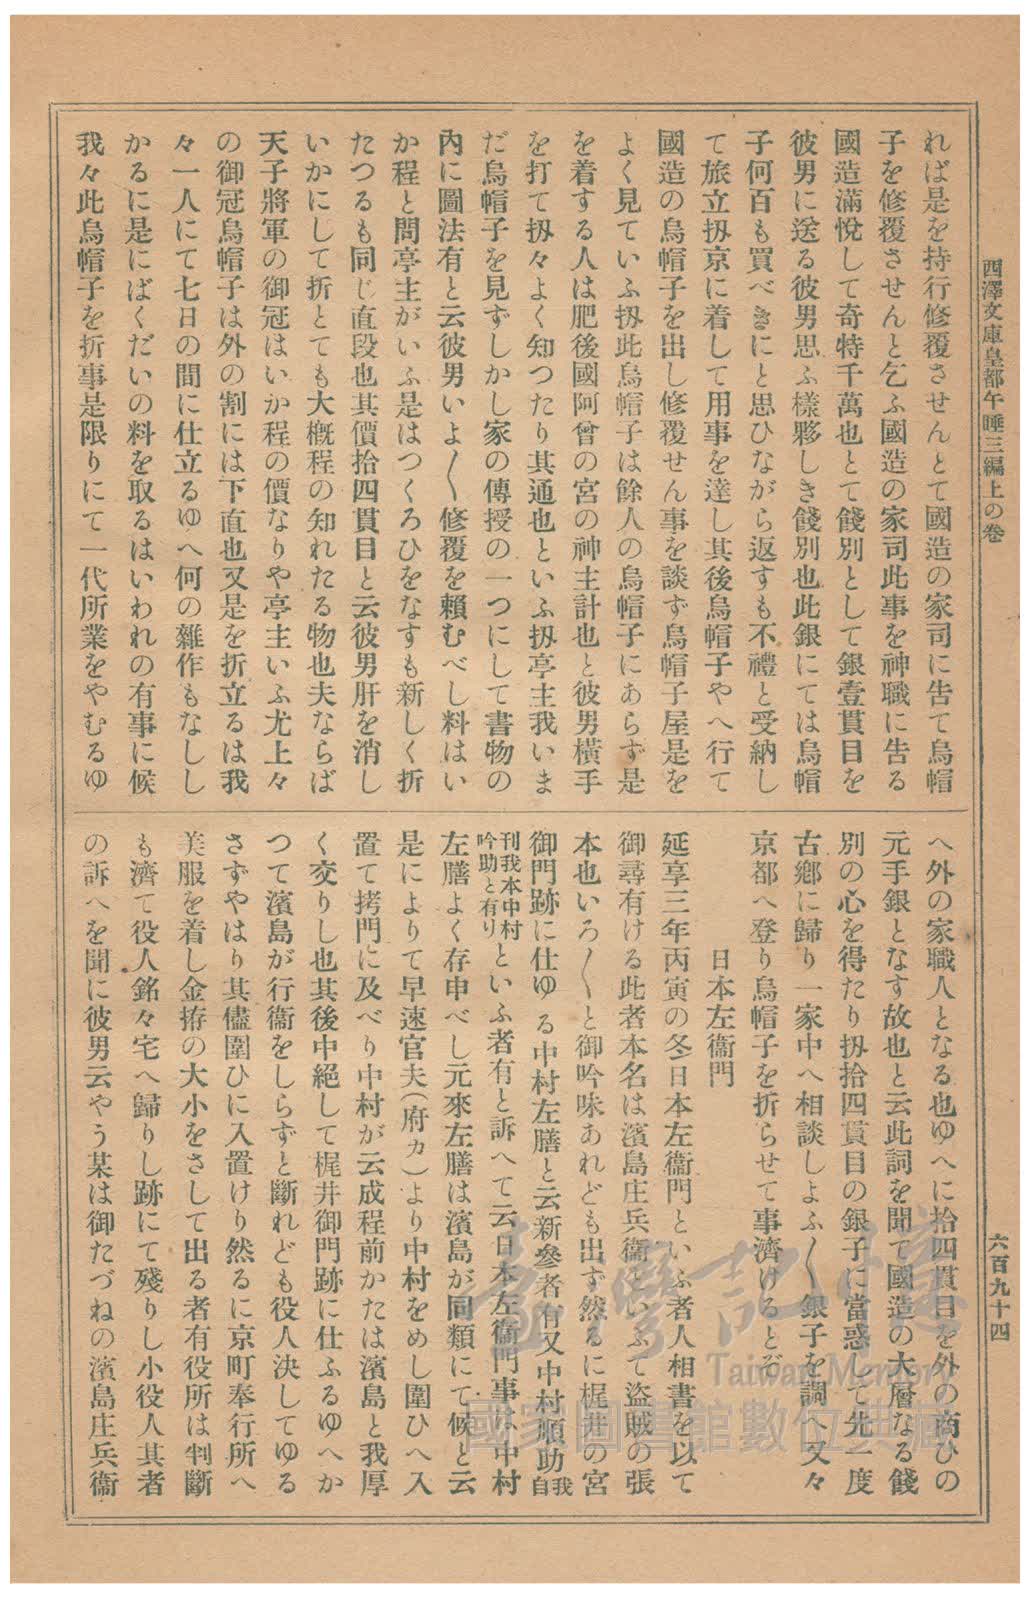 西澤文庫皇都午睡三編上の卷
六百九十四
れば是を持行修覆させんとて國造の家司に告て烏帽
子を修覆させんと乞ふ國造の家司此事を神職に告る
國造滿悅して奇特千萬也とて餞別として銀壹貫目を
彼男に送る彼男思ふ樣夥しき餞別也此銀にては烏帽
子何百も買べきにと思ひながら返すも不禮と受納し
て旅立扨京に着して用事を達し其後烏帽子やへ行て
國造の烏帽子を出し修覆せん事を談ず烏帽子屋是を
よく見ていふ扨此烏帽子は餘人の烏帽子にあらず是
を着する人は肥後國阿曾の宮の神主計也と彼男橫手
を打て扨々よく知つたり其通也といふ扨亭主我いま
だ烏帽子を見ずしかし家の傳授の一つにして書物の
內に圖法有と云彼男いよ〱修覆を賴むべし料はい
か程と問亭主がいふ是はつくろひをなすも新しく折
たつるも同じ直段也其價拾四貫目と云彼男肝を消し
いかにして折とても大槪程の知れたる物也夫ならば
天子將軍の御冠はいか程の價なりや亭主いふ尤上々
の御冠烏帽子は外の割には下直也又是を折立るは我
々一人にて七日の間に仕立るゆへ何の雜作もなしし
かるに是にばくだいの料を取るはいわれの有事に候
我々此烏帽子を折事是限りにて一代所業をやむるゆ
へ外の家職人となる也ゆへに拾四貫目を外の商ひの
元手銀となす故也と云此詞を聞て國造の大層なる餞
別の心を得たり扨拾四貫目の銀子に當惑して先一度
古鄕に歸り一家中へ相談しよふ〱銀子を調へ又々
京都へ登り烏帽子を折らせて事濟けるとぞ
日本左衞門
延享三年丙寅の冬日本左衞門といふ者人相書を以て
御尋有ける此者本名は濱島庄兵衞といふて盜賊の張
本也いろ〱と御吟味あれども出ず然るに梶井の宮
御門跡に仕ゆる中村左膳と云新參者有又中村順助自我
刊我本中村吟助と有りといふ者有と訴へて云日本左衞門事は中村
左膳よく存申べし元來左膳は濱島が同類にて候と云
是によりて早速官夫(府カ)より中村をめし圍ひへ入
置て拷門に及べり中村が云成程前かたは濱島と我厚
く交りし也其後中絕して梶井御門跡に仕ふるゆへか
つて濱島が行衞をしらずと斷れども役人決してゆる
さずやはり其儘圍ひに入置けり然るに京町奉行所へ
美服を着し金拵の大小をさして出る者有役所は判斷
も濟て役人銘々宅へ歸りし跡にて殘りし小役人其者
の訴へを聞に彼男云やう某は御たづねの濱島庄兵衞
臺灣記憶
Taiwan Memory
國家圖書館數位典藏